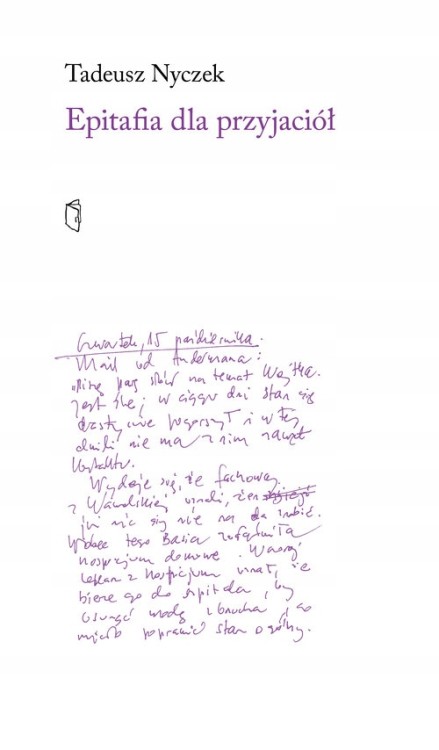 Tadeusz Nyczek
Epitafia dla przyjaciół
Czwartek, 15 października.
Mail od Andermana:
"Piszę parę słów na temat Wojtka.
Jest źle; w ciągu dni stan się
drastycznie pogorszył i w tej
chwili nie ma z nim nawet
kontaktu.
Wydaje się, że fachowcy
z Wawelskiej uznali, że
już nic się nie na da zrobić.
Wobec tego Basia załatwiła
hospicjum domowe. Wczoraj
lekarz z hospicjum uznał, że
bierze go do szpitala, by
usunąć wodę z brzucha, co
miało poprawić stan ogólny.